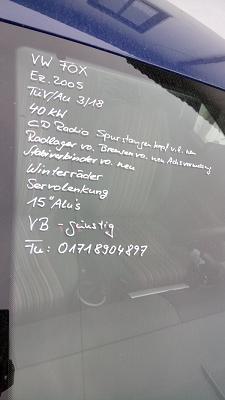 VW FOX
Ez. 2005
TÜV/Au 3/18
40 KW
CD Radio Spurstangen kopf v.R. neu
Radlager vo. Bremsen vo. neu Achsvermessung
Stabiverbinder vo. neu
Winterräder
Servolenkung
15" Alu's
VB - günstig
Tel: 01718904897